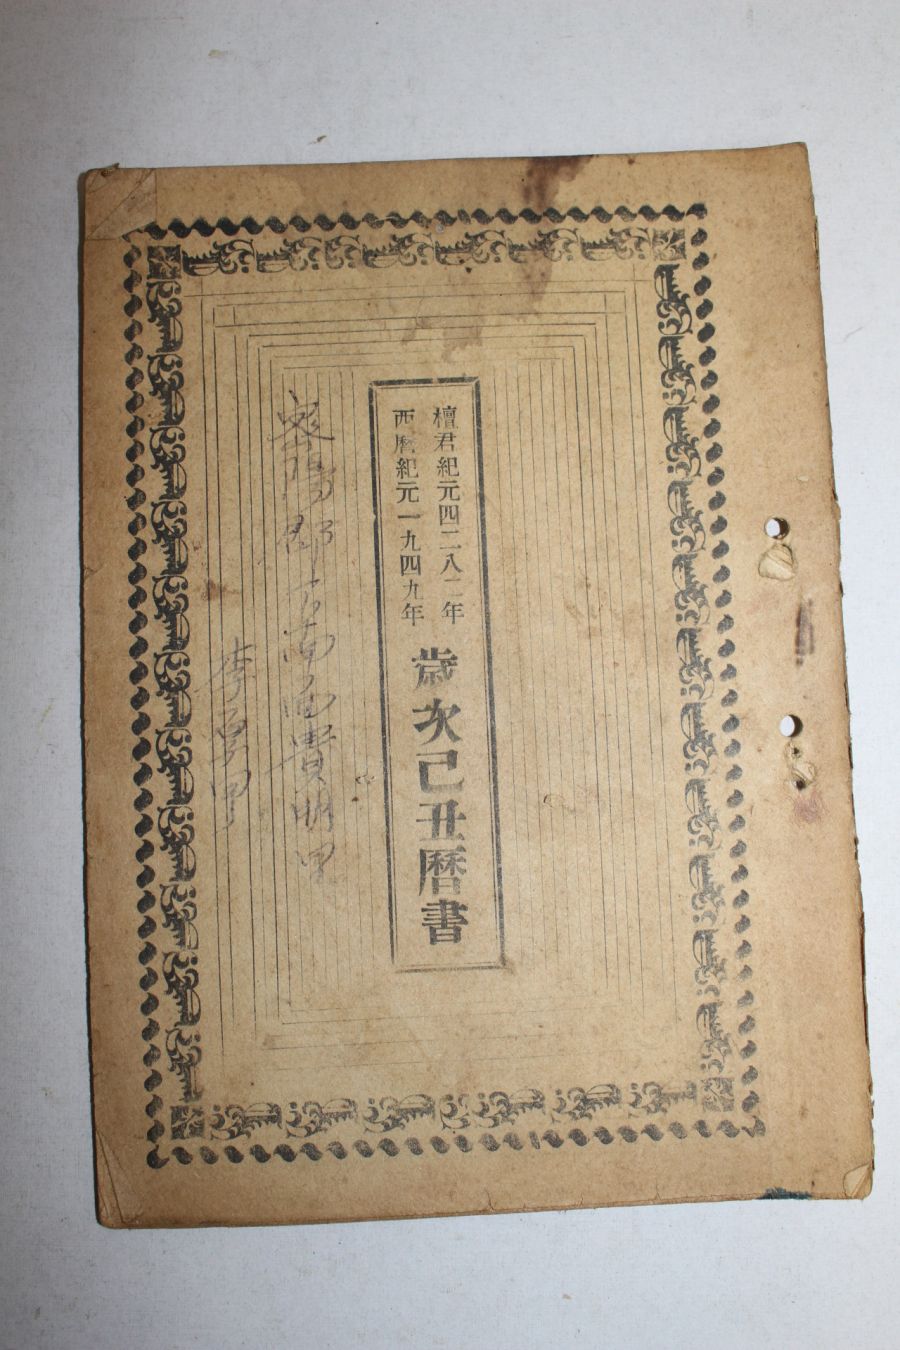 檀君紀元四二八二年
西曆紀元一九四九年
歲次己丑曆書
密陽郡下南面貴明里